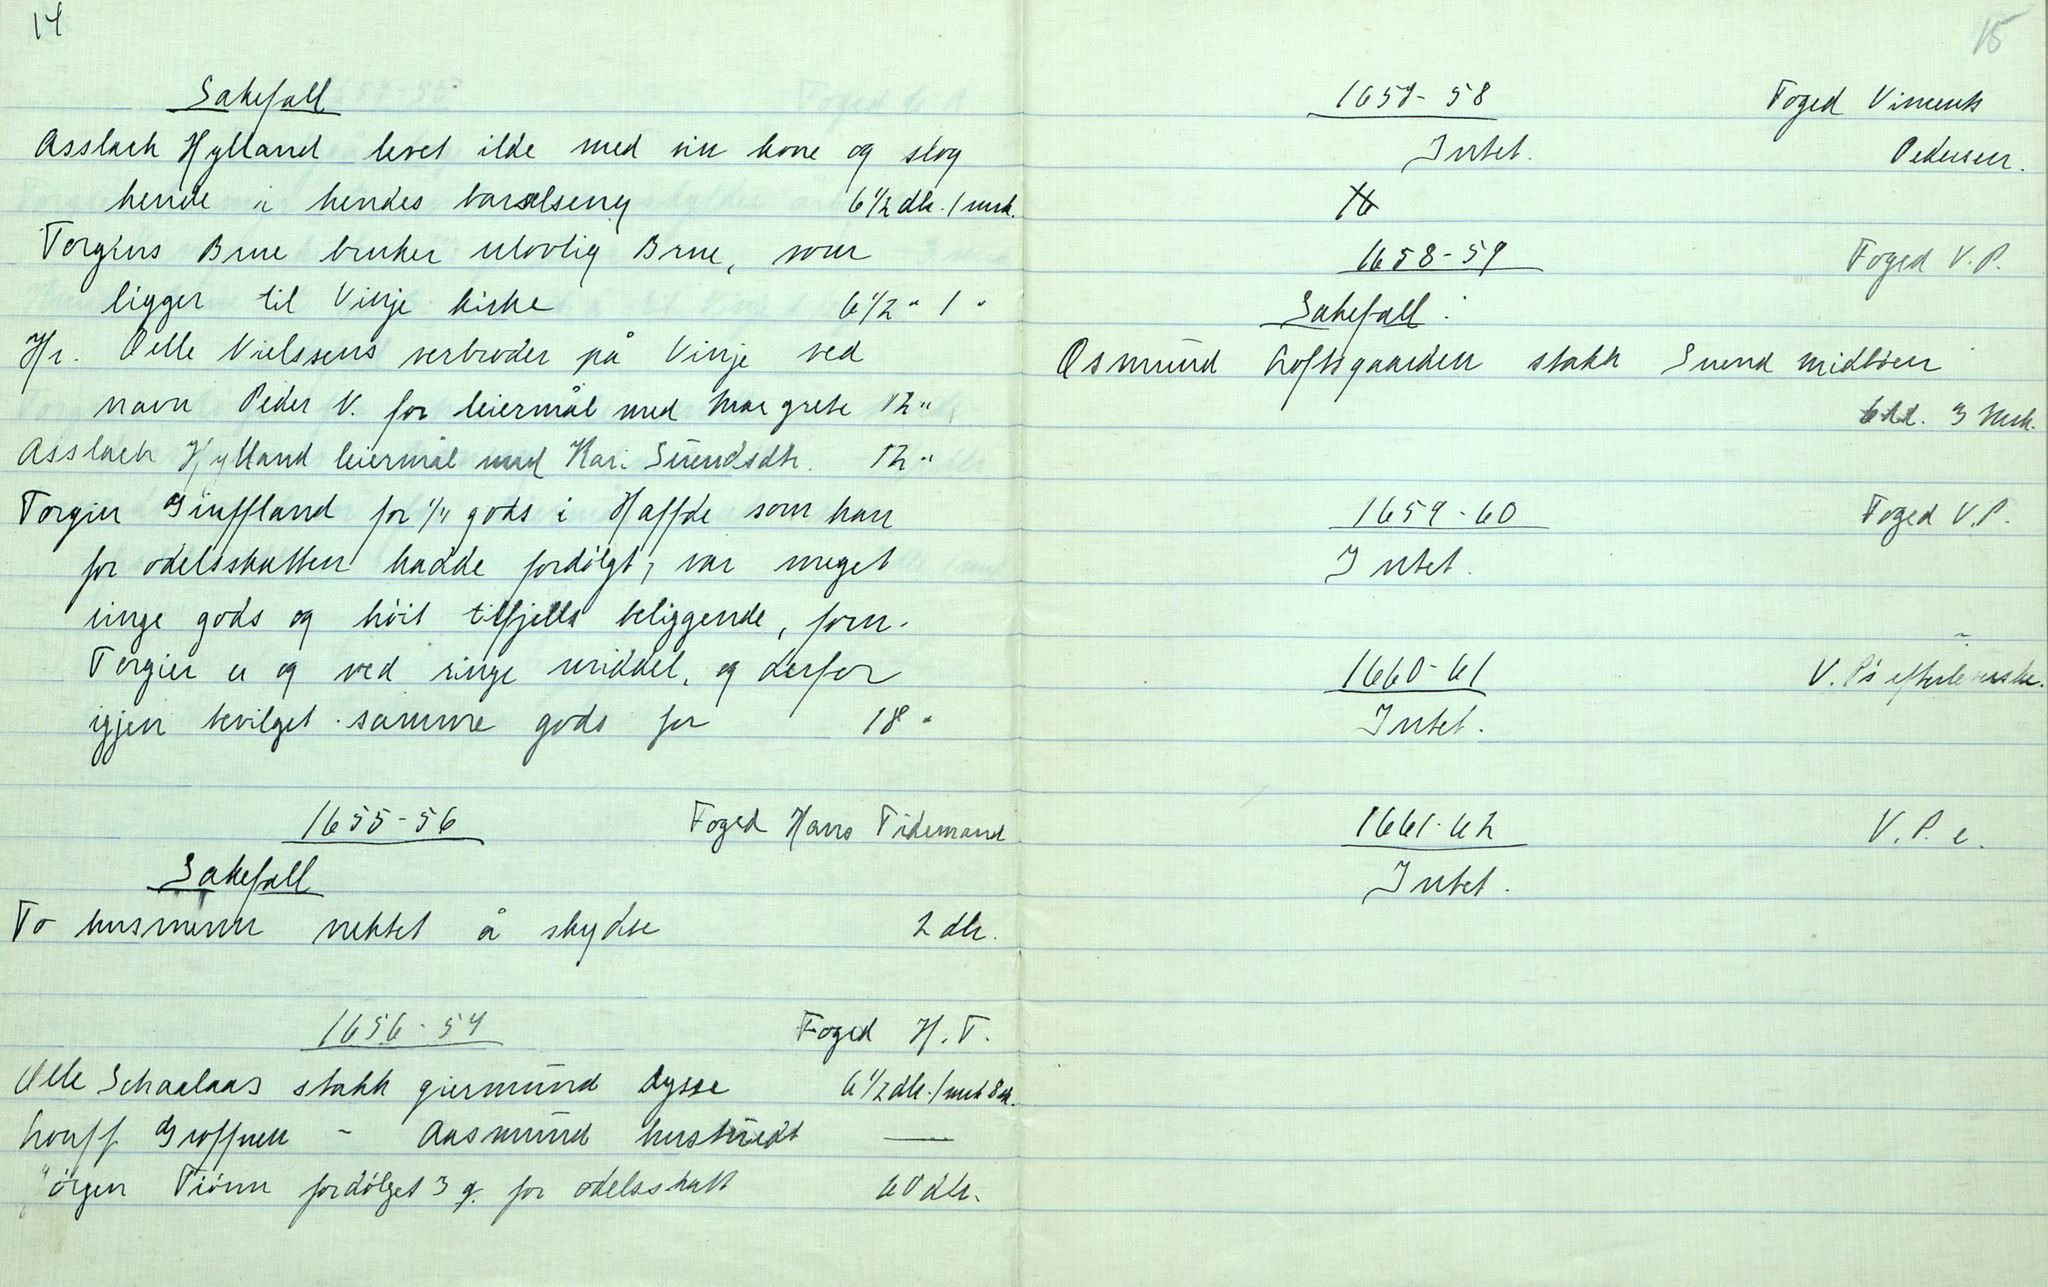 14
Sakefall
Asslach Hylland levet ilde med sin kone og slog
hende i hendes barselseng 6 1/2 dlr. 1 mrk.
Torgius Brue bruker ulovlig Brue, som
ligger til Vinje kirke 6 1/2 " 1 "
Hr. Oelle Nielssens verbroder på Vinje ved
navn Peder V. for leiermål med Margrete 12 "
Asslach Hylland leiermål med Kari Suendsdtr. 12 "
Torgier Giuffland for gods i Haffde som han
for odelsskatten hadde fordølgt, var meget
ringe gods og høit tilfjells beliggende,
Torgier er og ved ringe middel, og derfor
igjen bevilget samme gods for 18 "
1655-56 Foged Hans Tidemand
Sakefall
To husmenn nektet å skydse 2 dlr.
1656-57 Foged H. T.
Olle Schaalaas stakk giermünd Lysse 6 1/2 dlr. 1 mrk 8 sk.
Louff Groffuen - Aasmünd hustuedt —
Jörgen Tiönn fordølget 3 g. for odelsskatt 60 dlr.
15
1657-58 Foged Vincents
Intet. Pedersen.
16
1658-59 Foged V. P.
Sakefall.
Osmünd Loftsgaarden stakk Suend midböen
6 dlr. 3 mrk.
1659-60 Foged V. P.
Intet.
1660-61 V. P's efterleverske.
Intet.
1661-62 V. P. e.
Intet.